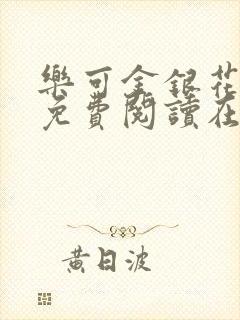 樂可金銀花
免費閱讀在
黃日波